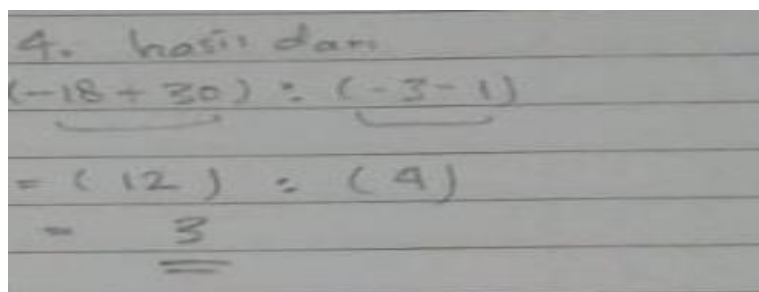 4. hasil dari
(-18 + 30) : (-3 - 1)
= (12) : (4)
= 3